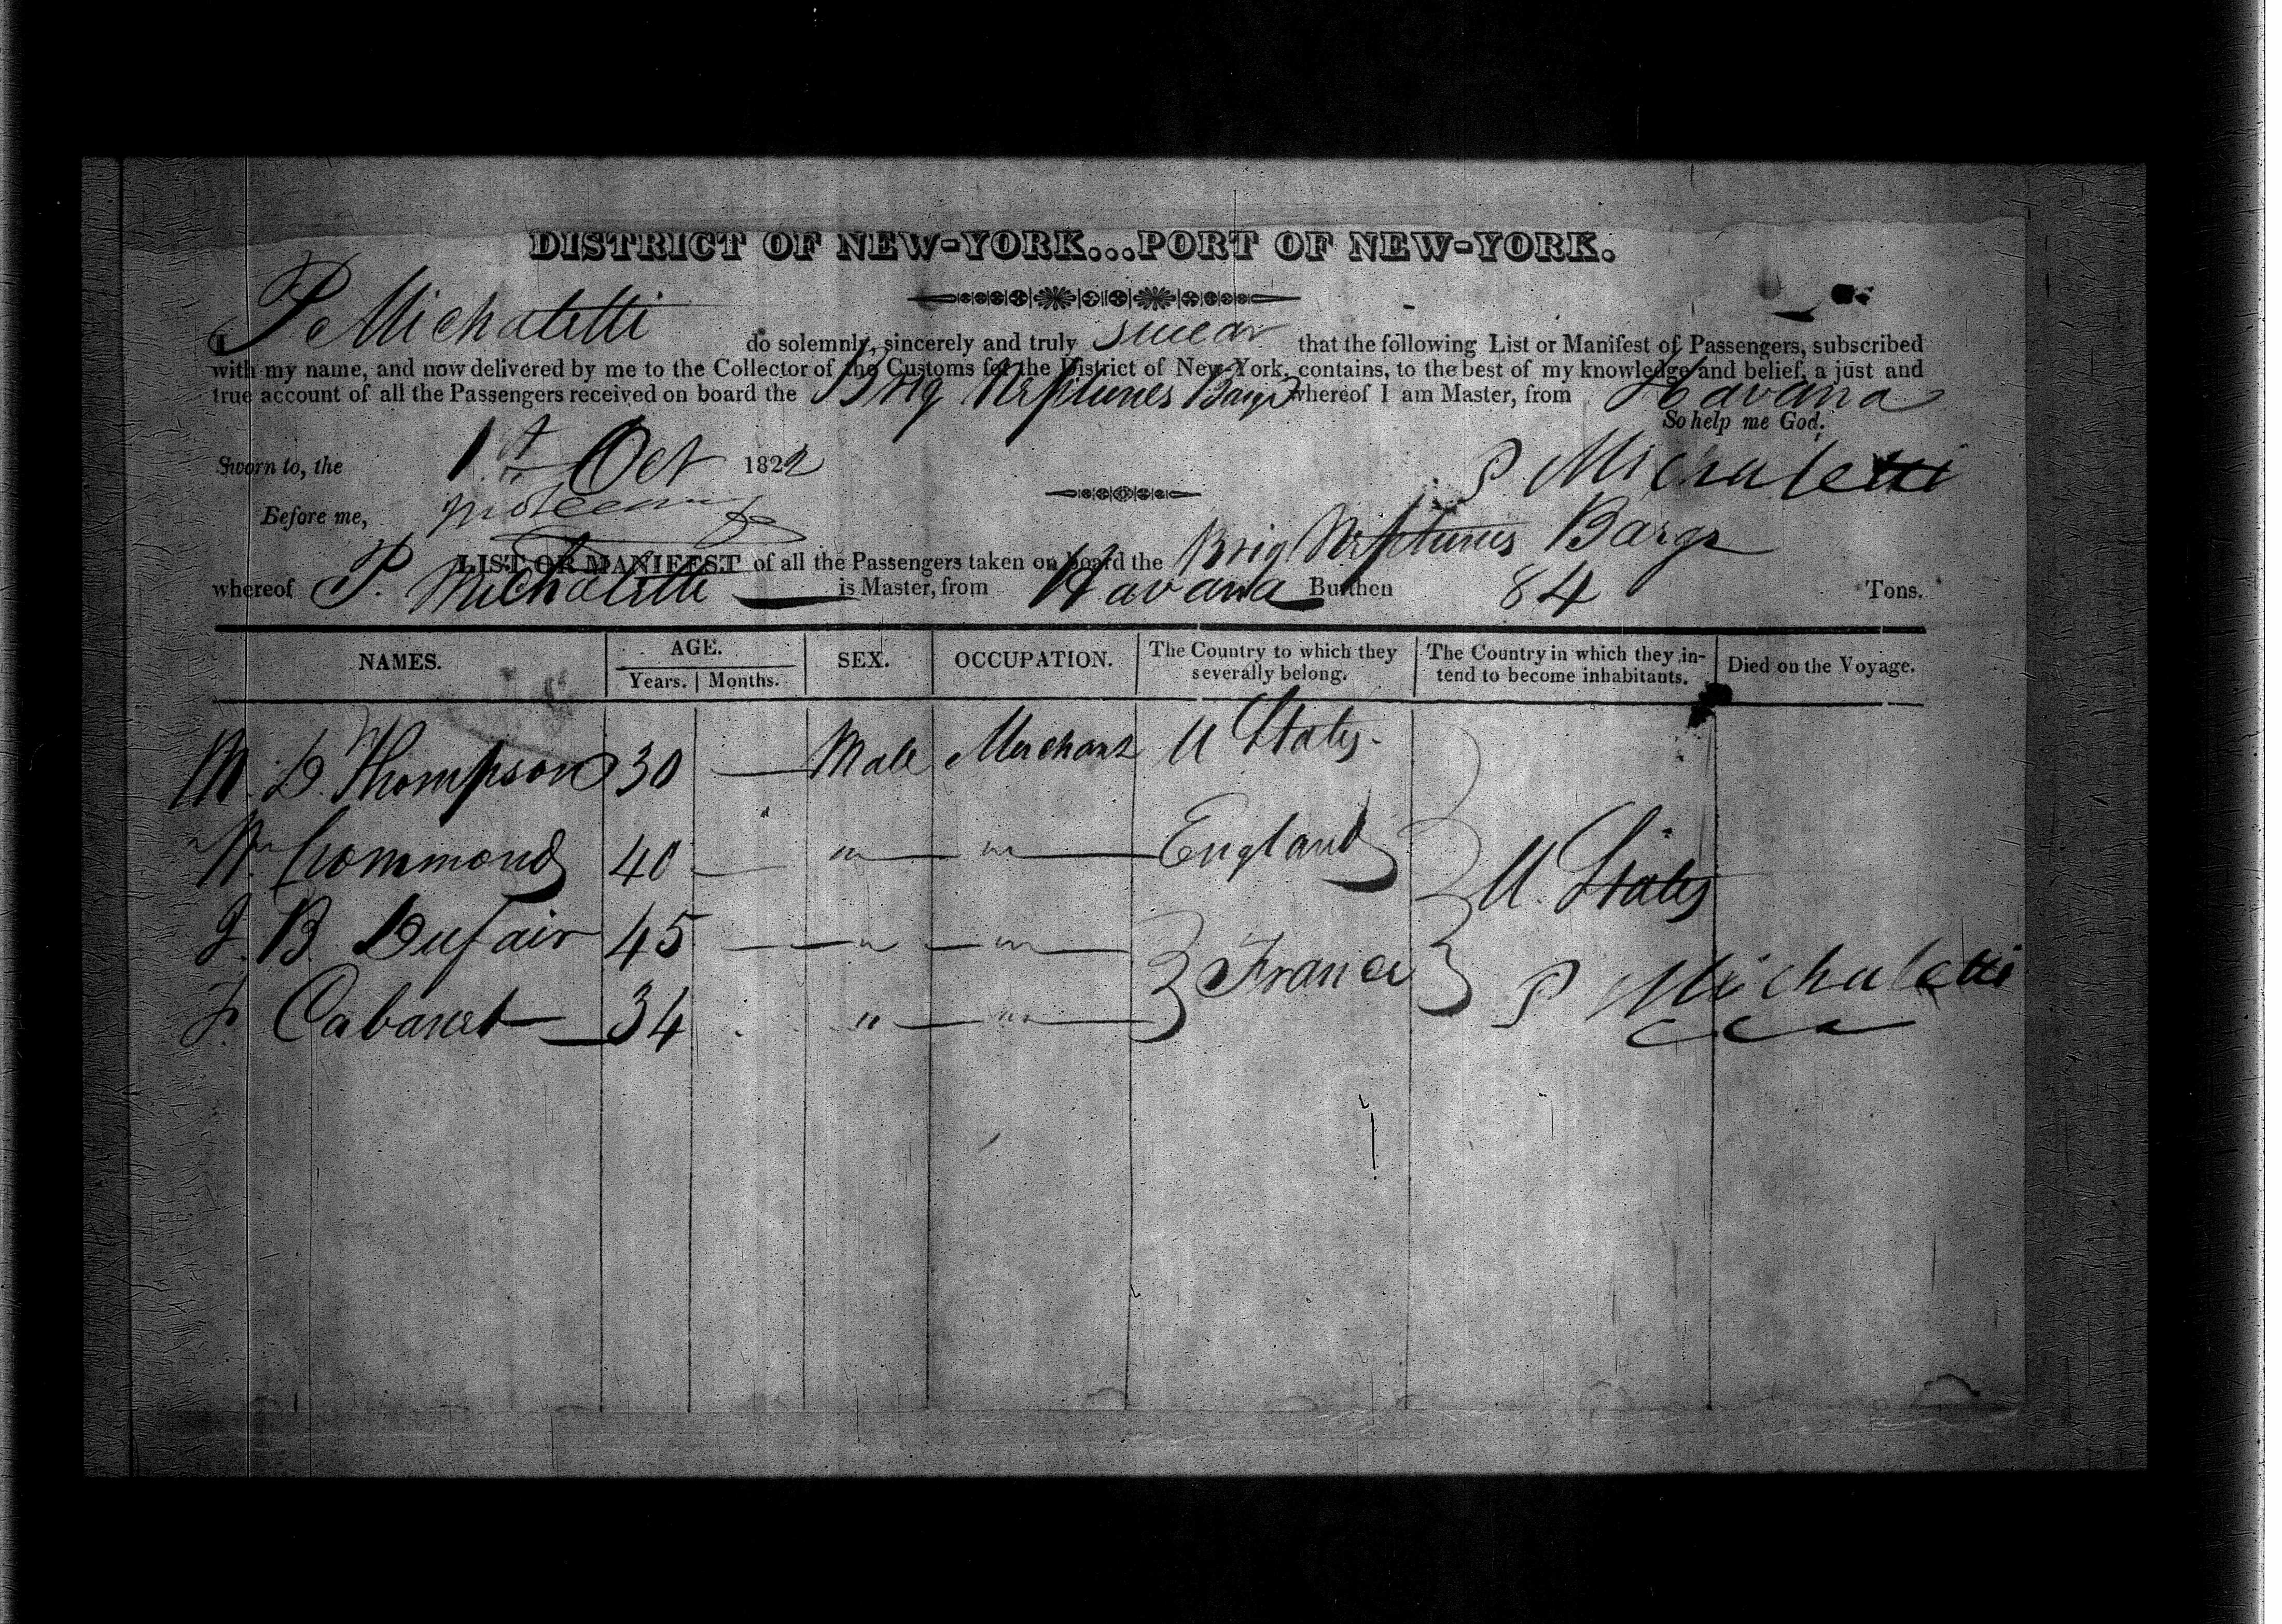 DISTRICT OF NEW-YORK...PORT OF NEW-YORK.
I P Michaletti do solemnly, sincerely and truly swear that the following List or Manifest of Passengers, subscribed
with my name, and now delivered by me to the Collector of the Customs for the District of New-York, contains, to the best of my knowledge and belief, a just and
true account of all the Passengers received on board the Brig Neptunes Barge whereof I am Master, from Havana
So help me God.
Sworn to, the 1st Oct 1822
P Michaletti
Before me,
LIST OR MANIFEST of all the Passengers taken on board the Brig Neptunes Barge
whereof P. Michaletti is Master, from Havana Burthen 84 Tons.
NAMES. AGE. SEX. OCCUPATION. The Country to which they severally belong. The Country in which they intend to become inhabitants. Died on the Voyage.
Years. Months.
M. D. Thompson 30 — Male Merchant U States
Crommond 40 — " — " — England
U. States
J. B. Dufair 45 — " — " —
France
P Michaletti
F. Cabaret — 34 " — " —